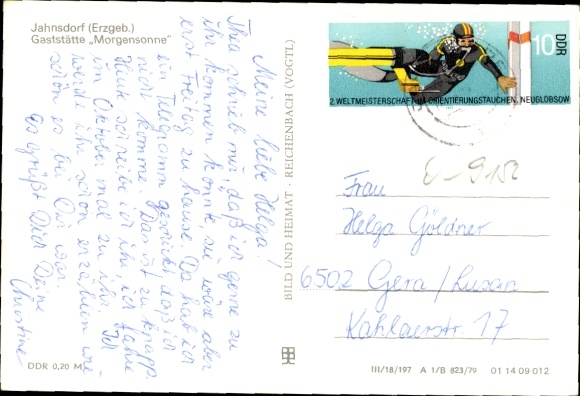 Jahnsdorf (Erzgeb.)
Gaststätte „Morgensonne"
Meine liebe Helga!
Thea schrieb mir, daß ich gerne zu
ihr kommen könnte, sie wäre aber
erst Freitag zu Hause. Da hab ich
ein Telegramm geschickt, daß ich
nicht komme. Das ist zu knapp.
Heute schreibe ich ihr, ich fahre
im Oktober mal zu ihr. Ich
werde ihr schon erzählen wie
schön es bei Dir war.
Es grüßt Dich Deine
Christine
DDR 0,20 M
BILD UND HEIMAT · REICHENBACH (VOGTL)
10
DDR
2. WELTMEISTERSCHAFT IM ORIENTIERUNGSTAUCHEN, NEUGLOBSOW
0-9152
Frau
Helga Göldner
6502 Gera/Lusan
Kahlaerstr. 17
III/18/197 A 1/B 823/79 01 14 09 012